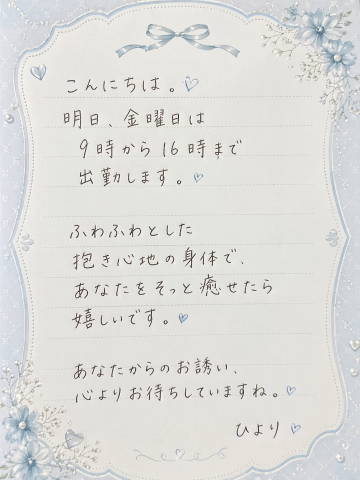 こんにちは。♡
明日、金曜日は
9時から16時まで
出勤します。♡
ふわふわとした
抱き心地の身体で、
あなたをそっと癒せたら
嬉しいです。♡
あなたからのお誘い、
心よりお待ちしていますね。♡
ひより♡